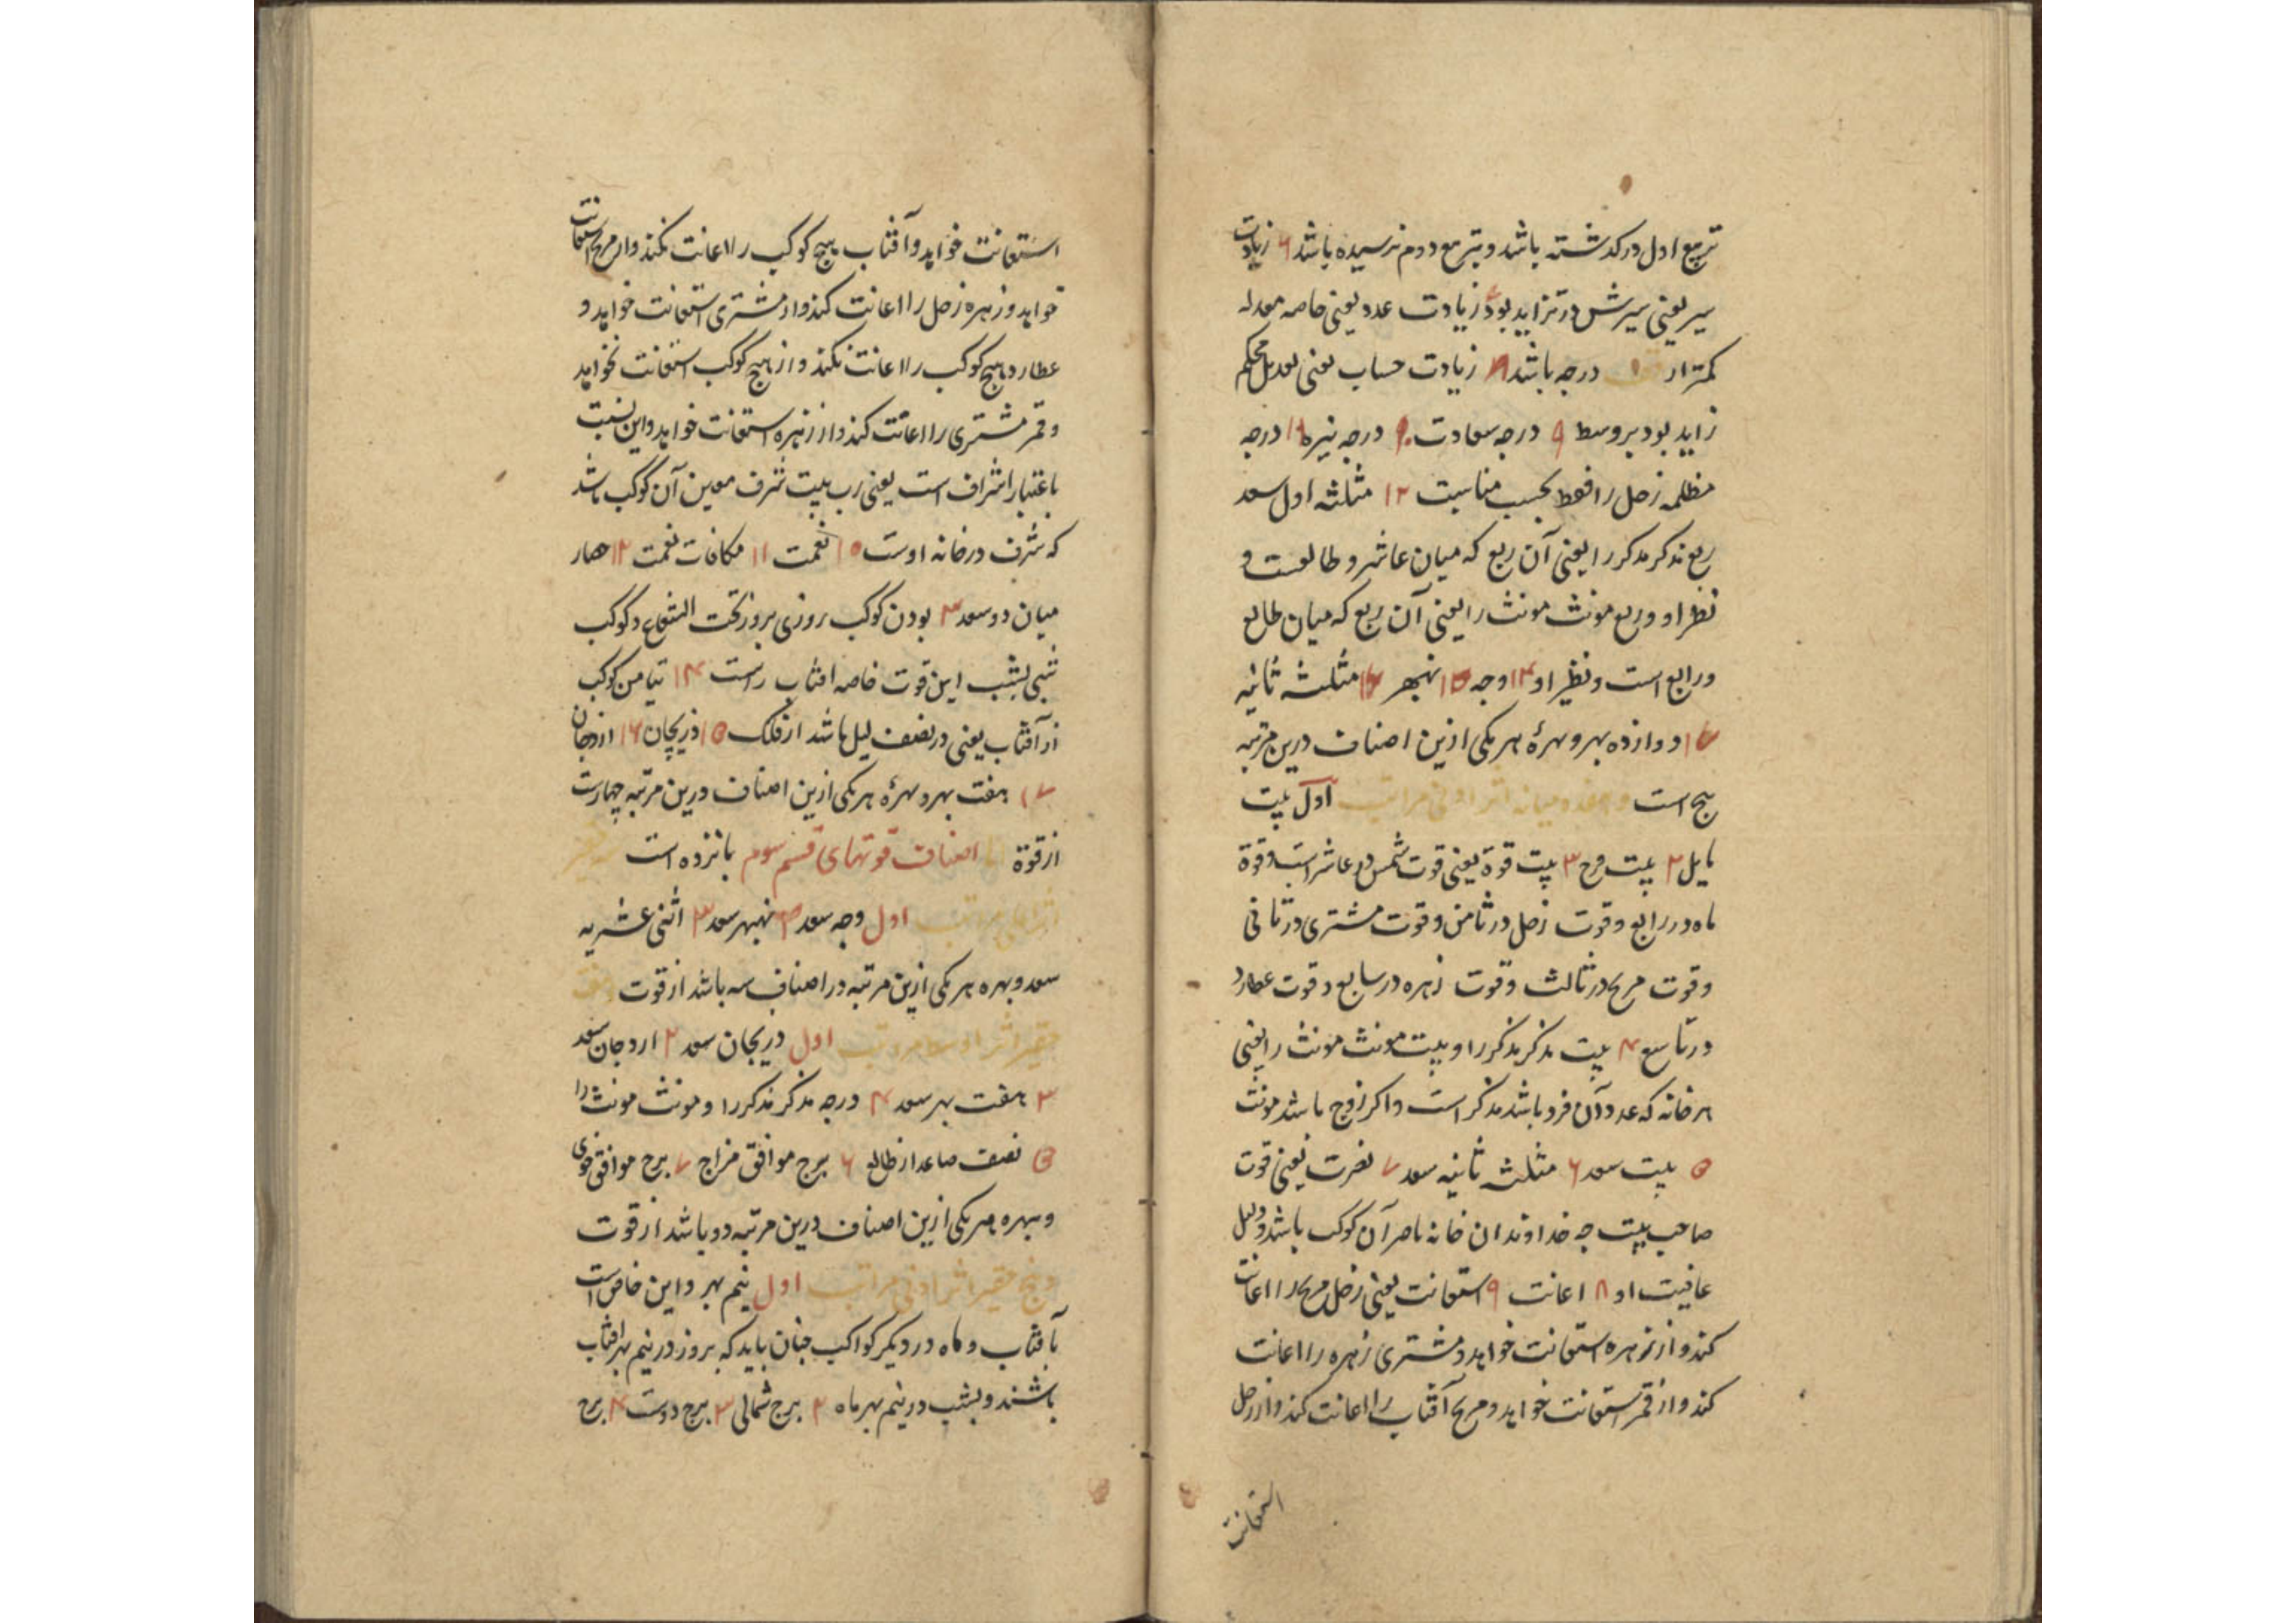 تربیع اول درکذشته باشد و بتربیع دوم نرسیده باشد ۶ زیادت
سیر یعنی سیرش در تزاید بود ۷ زیادت عدد یعنی خاصه معدله
کمتر از درجه باشد ۸ زیادت حساب یعنی تعدیل محکم
زاید بود بر وسط ۹ درجه سعادت ۱۰ درجه نیره ۱۱ درجه
مظلمه زحل را فقط بحسب مناسبت ۱۲ مثلثه اول سعد
ربع مذکر مذکر را یعنی آن ربع که میان عاشر و طالعست و
نظیر او و ربع مونث مونث را یعنی آن ربع که میان طالع
و رابع است و نظیر او ۱۴ وجه ۱۵ نهبهر ۱۶ مثلثه ثانیه
۱۷ دوازده بهر و بهرهٔ هر یکی ازین اصناف درین مرتبه
پنج است اول بیت
مایل ۲ بیت فرح ۳ بیت قوة یعنی قوت شمس در عاشر است و قوة
ماه در رابع و قوت زحل در ثامن و قوت مشتری در ثانی
و قوت مریخ در ثالث و قوت زهره در سابع و قوت عطارد
در تاسع ۴ بیت مذکر مذکر را و بیت مونث مونث را یعنی
هر خانه که عدد آن فرد باشد مذکر است و اکر زوج باشد مونث
۵ بیت سعد ۶ مثلثه ثانیه سعد ۷ نصرت یعنی قوت
صاحب بیت چه خداوندان خانه ناصر آن کوکب باشد و دلیل
عافیت او ۸ اعانت ۹ استعانت یعنی زحل مریخ را اعانت
کند و از زهره استعانت خواهد و مشتری زهره را اعانت
کند و از قمر استعانت خواهد و مریخ آفتاب را اعانت کند و از زحل
استعانت
استعانت خواهد و آفتاب هیچ کوکب را اعانت نکند و از مریخ استعانت
خواهد و زهره زحل را اعانت کند و از مشتری استعانت خواهد و
عطارد هیچ کوکب را اعانت نکند و از هیچ کوکب استعانت نخواهد
و قمر مشتری را اعانت کند و از زهره استعانت خواهد و این نسبت
باعتبار اشراف است یعنی رب بیت شرف معین آن کوکب باشد
که شرف در خانه اوست ۱۰ نعمت ۱۱ مکافات نعمت ۱۲ حصار
میان دو سعد ۱۳ بودن کوکب روزی بروز تحت الشعاع و کوکب
شبی بشب این قوت خاصه افتاب راست ۱۴ تیامن کوکب
از آفتاب یعنی در نصف لیل باشد از فلک ۱۵ دریجان ۱۶ اردجان
۱۷ هفت بهر و بهرهٔ هر یکی ازین اصناف درین مرتبه چهارست
از قوة اما اصناف قوتهای قسم سوم پانزده است
اول وجه سعد ۲ نهبهر سعد ۳ اثنی عشریه
سعد و بهره هر یکی ازین مرتبه در اصناف سه باشد از قوت
اول دریجان سعد ۲ اردجان سعد
۳ هفت بهر سعد ۴ درجه مذکر مذکر را و مونث مونث را
۵ نصف صاعد از طالع ۶ برج موافق مزاج ۷ برج موافق خوی
و بهره هر یکی ازین اصناف درین مرتبه دو باشد از قوت
و پنج حقیر اثر ادنی مراتب اول نیم بهر و این خاص است
بآفتاب و ماه در دیکر کواکب چنان باید که بروز در نیم بهر افتاب
باشند و بشب در نیم بهر ماه ۲ برج شمالی ۳ برج دوست ۴ برج